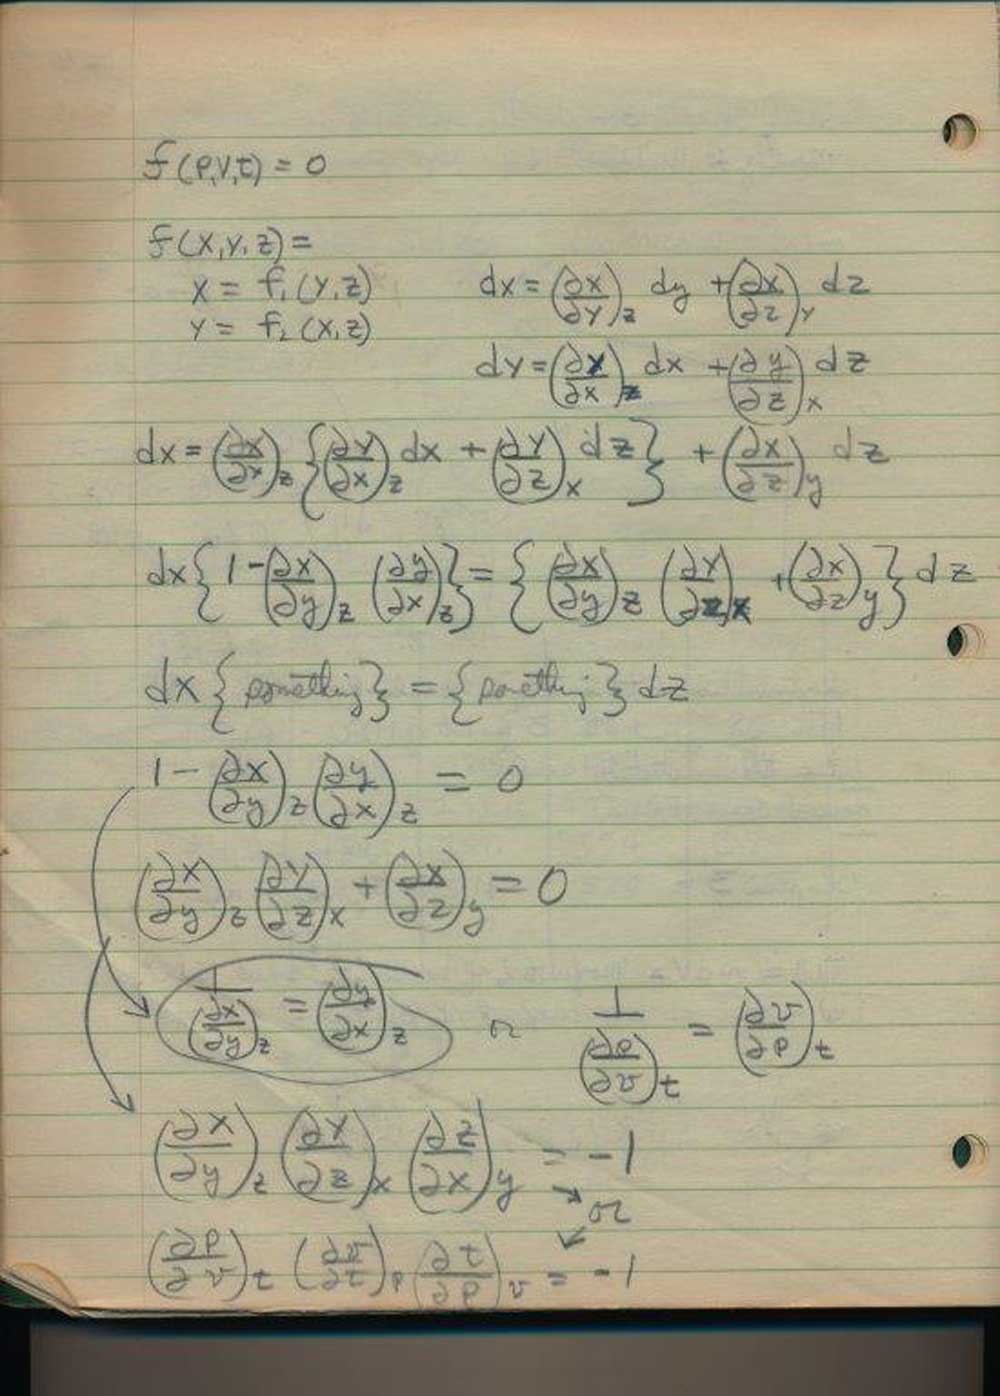 f(P,V,t) = 0
f(X,Y,Z) =
X = f₁(Y,Z)
dx = (∂X/∂Y)_z dy + (∂X/∂z)_Y dz
Y = f₂(X,Z)
dY = (∂Y/∂x)_z dx + (∂y/∂z)_x dz
dx = (∂X/∂x)_z {(∂Y/∂x)_z dx + (∂Y/∂z)_x dz} + (∂x/∂z)_y dz
dx{1 - (∂x/∂y)_z (∂y/∂x)_z} = {(∂x/∂y)_z (∂Y/∂z)_x + (∂x/∂z)_y} dz
dx {something} = {something} dz
1 - (∂x/∂y)_z (∂y/∂x)_z = 0
(∂x/∂y)_z (∂Y/∂z)_x + (∂x/∂z)_y = 0
1/(∂x/∂y)_z = (∂y/∂x)_z or 1/(∂P/∂v)_t = (∂v/∂P)_t
(∂x/∂y)_z (∂Y/∂z)_x (∂z/∂x)_y = -1
or
(∂P/∂v)_t (∂v/∂t)_P (∂t/∂P)_v = -1